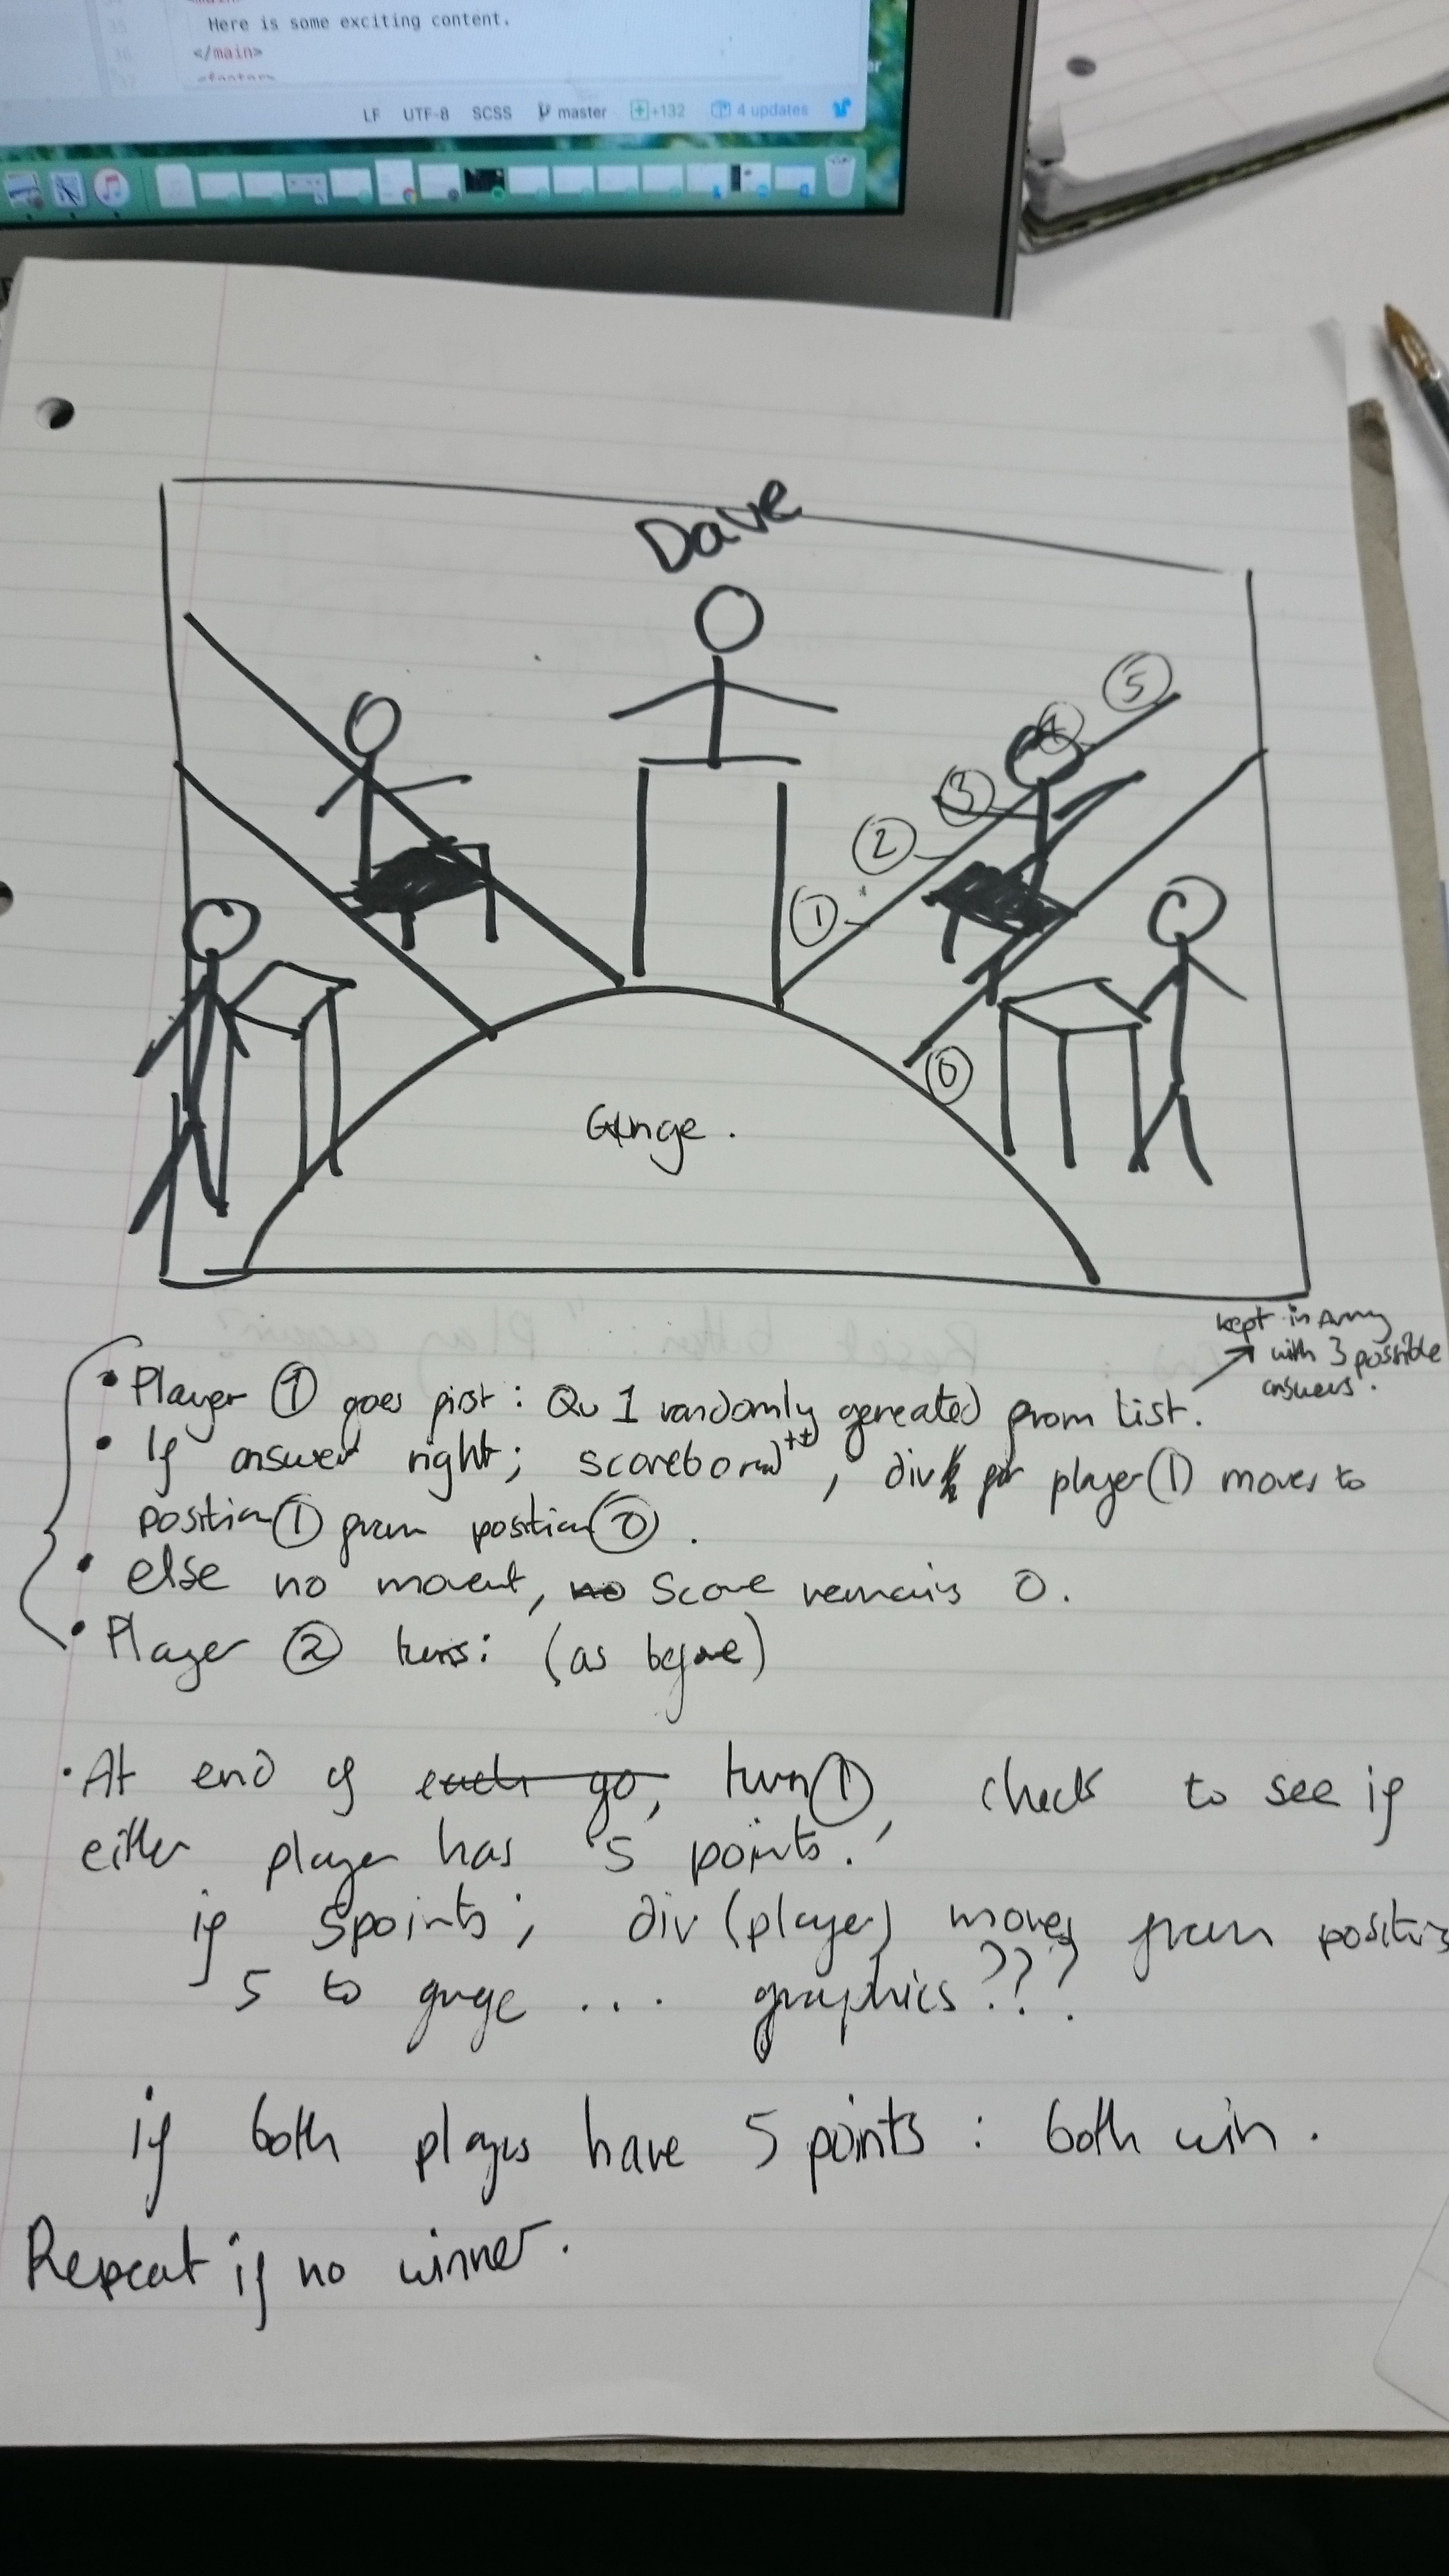 35 Here is some exciting content.
36 </main>
37 <footer>
LF UTF-8 SCSS master +132 4 updates
Dave
5
4
3
2
1
0
Gunge.
kept in Array
with 3 possible
answers.
• Player ① goes first: Qu 1 randomly gereated from list.
• If answer right; scorebored++, div for player(1) moves to
position① from position⓪.
• else no movent, no Score remains 0.
• Player ② turns: (as before)
• At end of each go, turn①, check to see if
either player has 5 points.
if 5points; div(player) moves from position
5 to gunge ... graphics???
if both players have 5 points: both win.
Repeat if no winner.